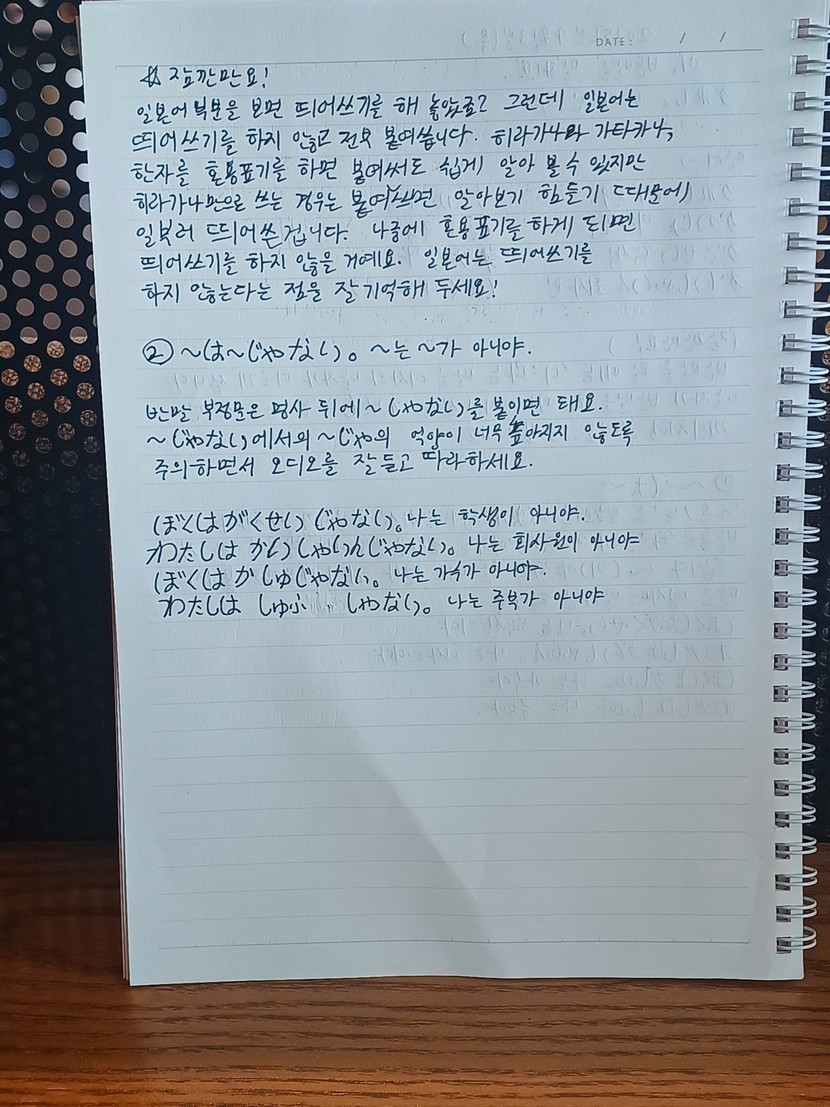 DATE: / /
※ 잠깐만요!
일본어 부분을 보면 띄어쓰기를 해 놓았죠? 그런데 일본어는
띄어쓰기를 하지 않고 전부 붙여씁니다. 히라가나와 가타카나,
한자를 혼용표기를 하면 붙여써도 쉽게 알아 볼 수 있지만
히라가나만으로 쓰는 경우는 붙여쓰면 알아보기 힘들기 때문에
일부러 띄어쓴 겁니다. 나중에 혼용표기를 하게 되면
띄어쓰기를 하지 않을 거예요. 일본어는 띄어쓰기를
하지 않는다는 점을 잘 기억해 두세요!
② ~は~じゃない。 ~는 ~가 아니야.
반말 부정문은 명사 뒤에 ~じゃない를 붙이면 돼요.
~じゃない에서의 ~じゃ의 억양이 너무 높아지지 않도록
주의하면서 오디오를 잘 듣고 따라하세요.
ぼくは がくせい じゃない。 나는 학생이 아니야.
わたしは かいしゃいんじゃない。 나는 회사원이 아니야
ぼくは かしゅじゃない。 나는 가수가 아니야.
わたしは しゅふ じゃない。 나는 주부가 아니야